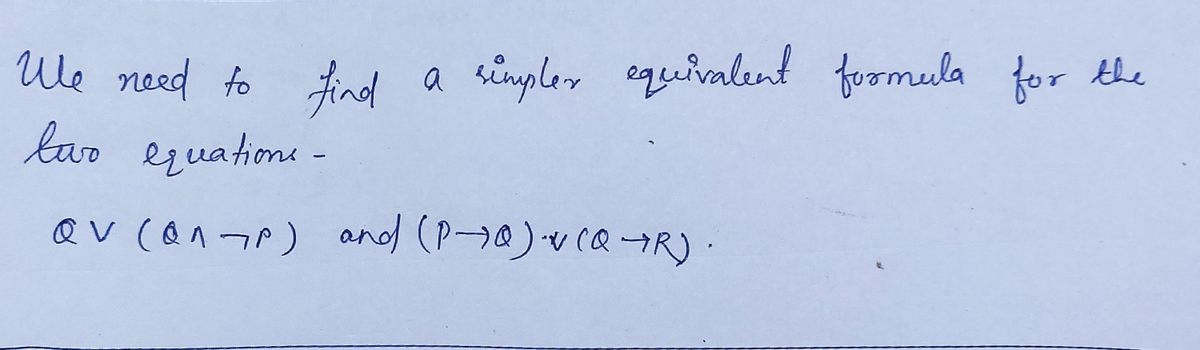 We need to find a simpler equivalent formula for the
two equations -
Q V (Q ∧ ¬P) and (P→Q) v (Q→R).